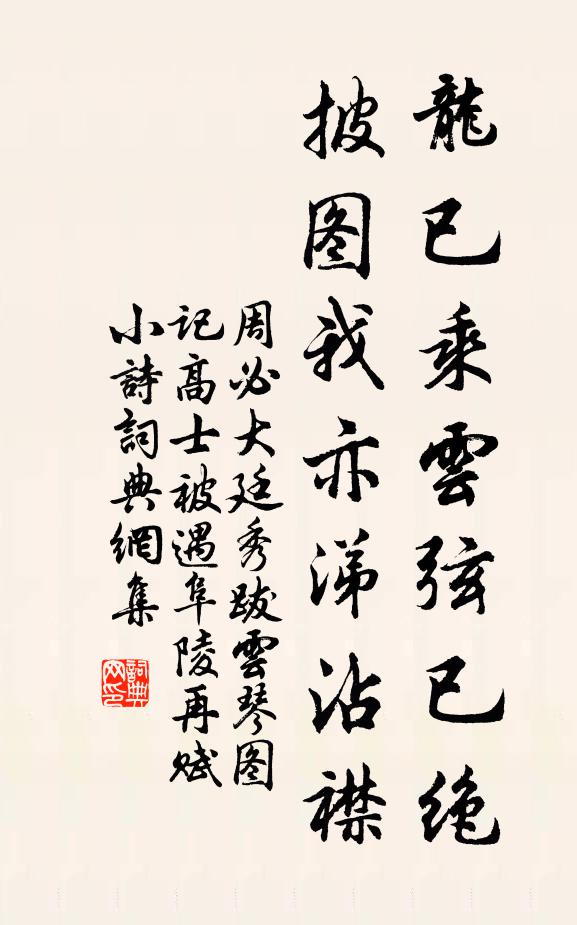 龍已乘雲弦已绝
披图我亦涕沾襟
周必大廷秀跋雲琴图
记高士被遇阜陵再赋
小詩詞典網集
詞典网印